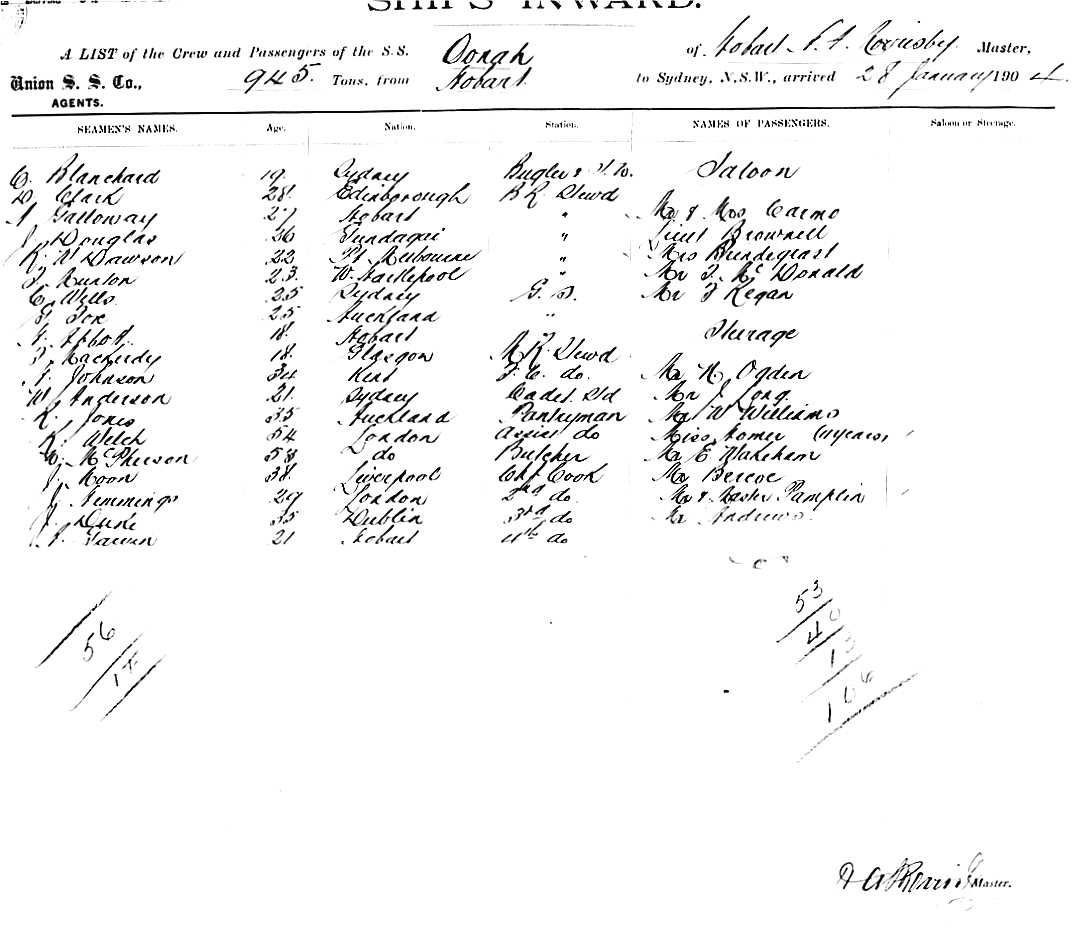 SHIPS INWARD.
A LIST of the Crew and Passengers of the S. S. Oonah of Hobart Master,
Union S. S. Co., 945. Tons, from Hobart to Sydney, N.S.W., arrived 28 January 1904.
AGENTS.
SEAMEN'S NAMES. Age. Nation. Station. NAMES OF PASSENGERS. Saloon or Steerage.
Saloon
Blanchard 19. Sydney Bugler &
D Clark 28. Edinborough B R Stewd
Galloway 27 Hobart " Mr & Mrs Carmo
J Douglas 26 Gundagai " Lieut Brownell
R. W Dawson 22 Pt Melbourne " Mrs Prendergrast
23. W. Hartlepool " Mr Mc Donald
C. Wells 25 Sydney G. S. Mr Regan
25 Auckland "
Abbot 18. Hobart " Sterage
18. Glasgow M. R. Stewd
Johnson 34 Kent do. Mr Ogden
W. Anderson 21. Sydney Cadet Std Mr J Long.
R. Jones 35 Auckland Pantryman Mr W Williams
Welch 54 London Assist do Miss Homer (11 years)
McPherson 58 do Butcher Mr E Wakeham
38. Liverpool Chf Cook Mr Bercoe
J. Hemmings 29 London 2nd do Mr & Master Pamplin
35 Dublin 3rd do Mr Andrews.
21 Hobart 4th do
56
53
40
13
106
Master.